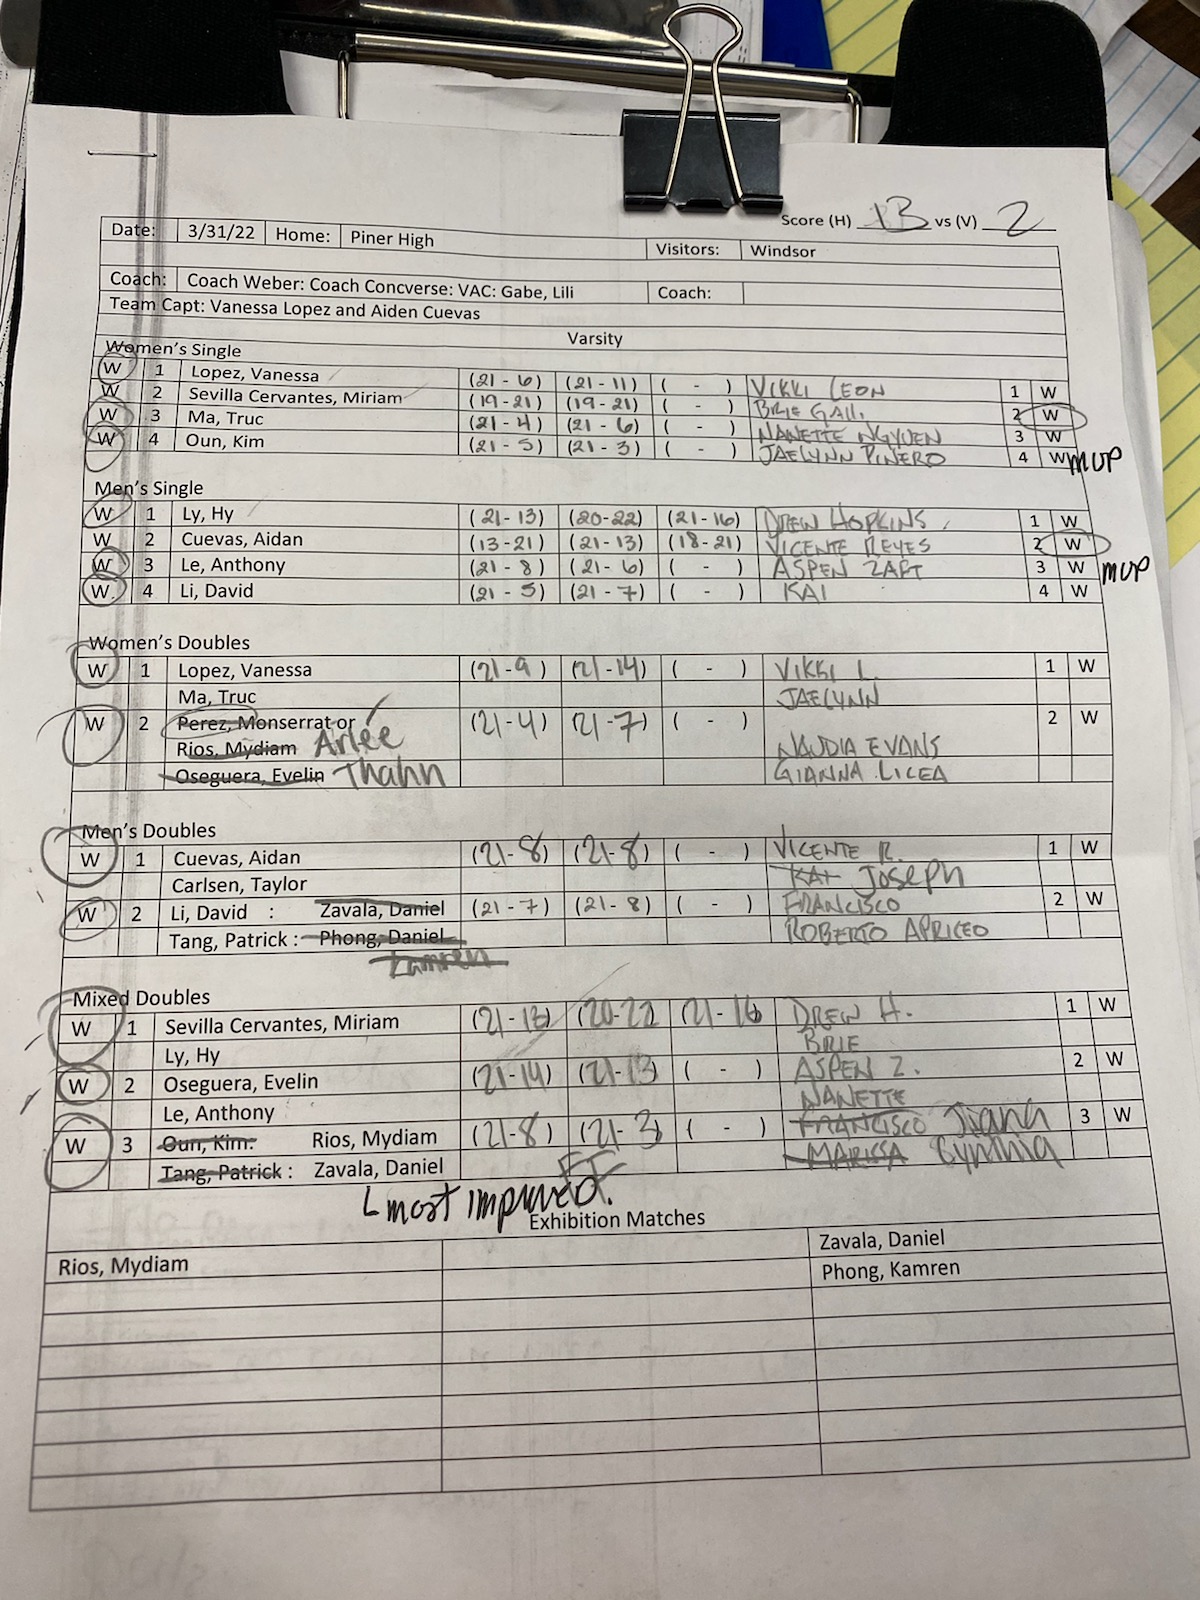 Score (H) 13 vs (V) 2
Date: 3/31/22 Home: Piner High Visitors: Windsor
Coach: Coach Weber: Coach Concverse: VAC: Gabe, Lili Coach:
Team Capt: Vanessa Lopez and Aiden Cuevas
Varsity
Women's Single
W 1 Lopez, Vanessa (21 - 6) (21 - 11) ( - ) VIKKI LEON 1 W
W 2 Sevilla Cervantes, Miriam (19 - 21) (19 - 21) ( - ) BRIE GALL 2 W
W 3 Ma, Truc (21 - 4) (21 - 6) ( - ) NANETTE NGYUEN 3 W
W 4 Oun, Kim (21 - 5) (21 - 3) ( - ) JAELYNN PINERO 4 W MVP
Men's Single
W 1 Ly, Hy (21 - 13) (20-22) (21 - 16) DREW HOPKINS 1 W
W 2 Cuevas, Aidan (13 - 21) (21 - 13) (18 - 21) VICENTE REYES 2 W
W 3 Le, Anthony (21 - 8) (21 - 6) ( - ) ASPEN ZAPT 3 W MVP
W 4 Li, David (21 - 5) (21 - 7) ( - ) KAI 4 W
Women's Doubles
W 1 Lopez, Vanessa (21-9) (21-14) ( - ) VIKKI L. 1 W
Ma, Truc JAELYNN
W 2 Perez, Monserrat or (21-4) (21-7) ( - ) 2 W
Rios, Mydiam Arlee NAUDIA EVANS
Oseguera, Evelin Thahn GIANNA LICEA
Men's Doubles
W 1 Cuevas, Aidan (21-8) (21-8) ( - ) VICENTE R. 1 W
Carlsen, Taylor KAI Joseph
W 2 Li, David : Zavala, Daniel (21 - 7) (21 - 8) ( - ) FRANCISCO 2 W
Tang, Patrick : Phong, Daniel ROBERTO APRICEO
Kamren
Mixed Doubles
W 1 Sevilla Cervantes, Miriam (21-13) (20-22 (21-16 DREW H. 1 W
Ly, Hy BRIE
W 2 Oseguera, Evelin (21-14) (21-13 ( - ) ASPEN Z. 2 W
Le, Anthony NANETTE
W 3 Oun, Kim: Rios, Mydiam (21-8) (21-3 ( - ) FRANCISCO 3 W
Tang, Patrick : Zavala, Daniel MARISSA
most improved.
Exhibition Matches
Zavala, Daniel
Rios, Mydiam Phong, Kamren